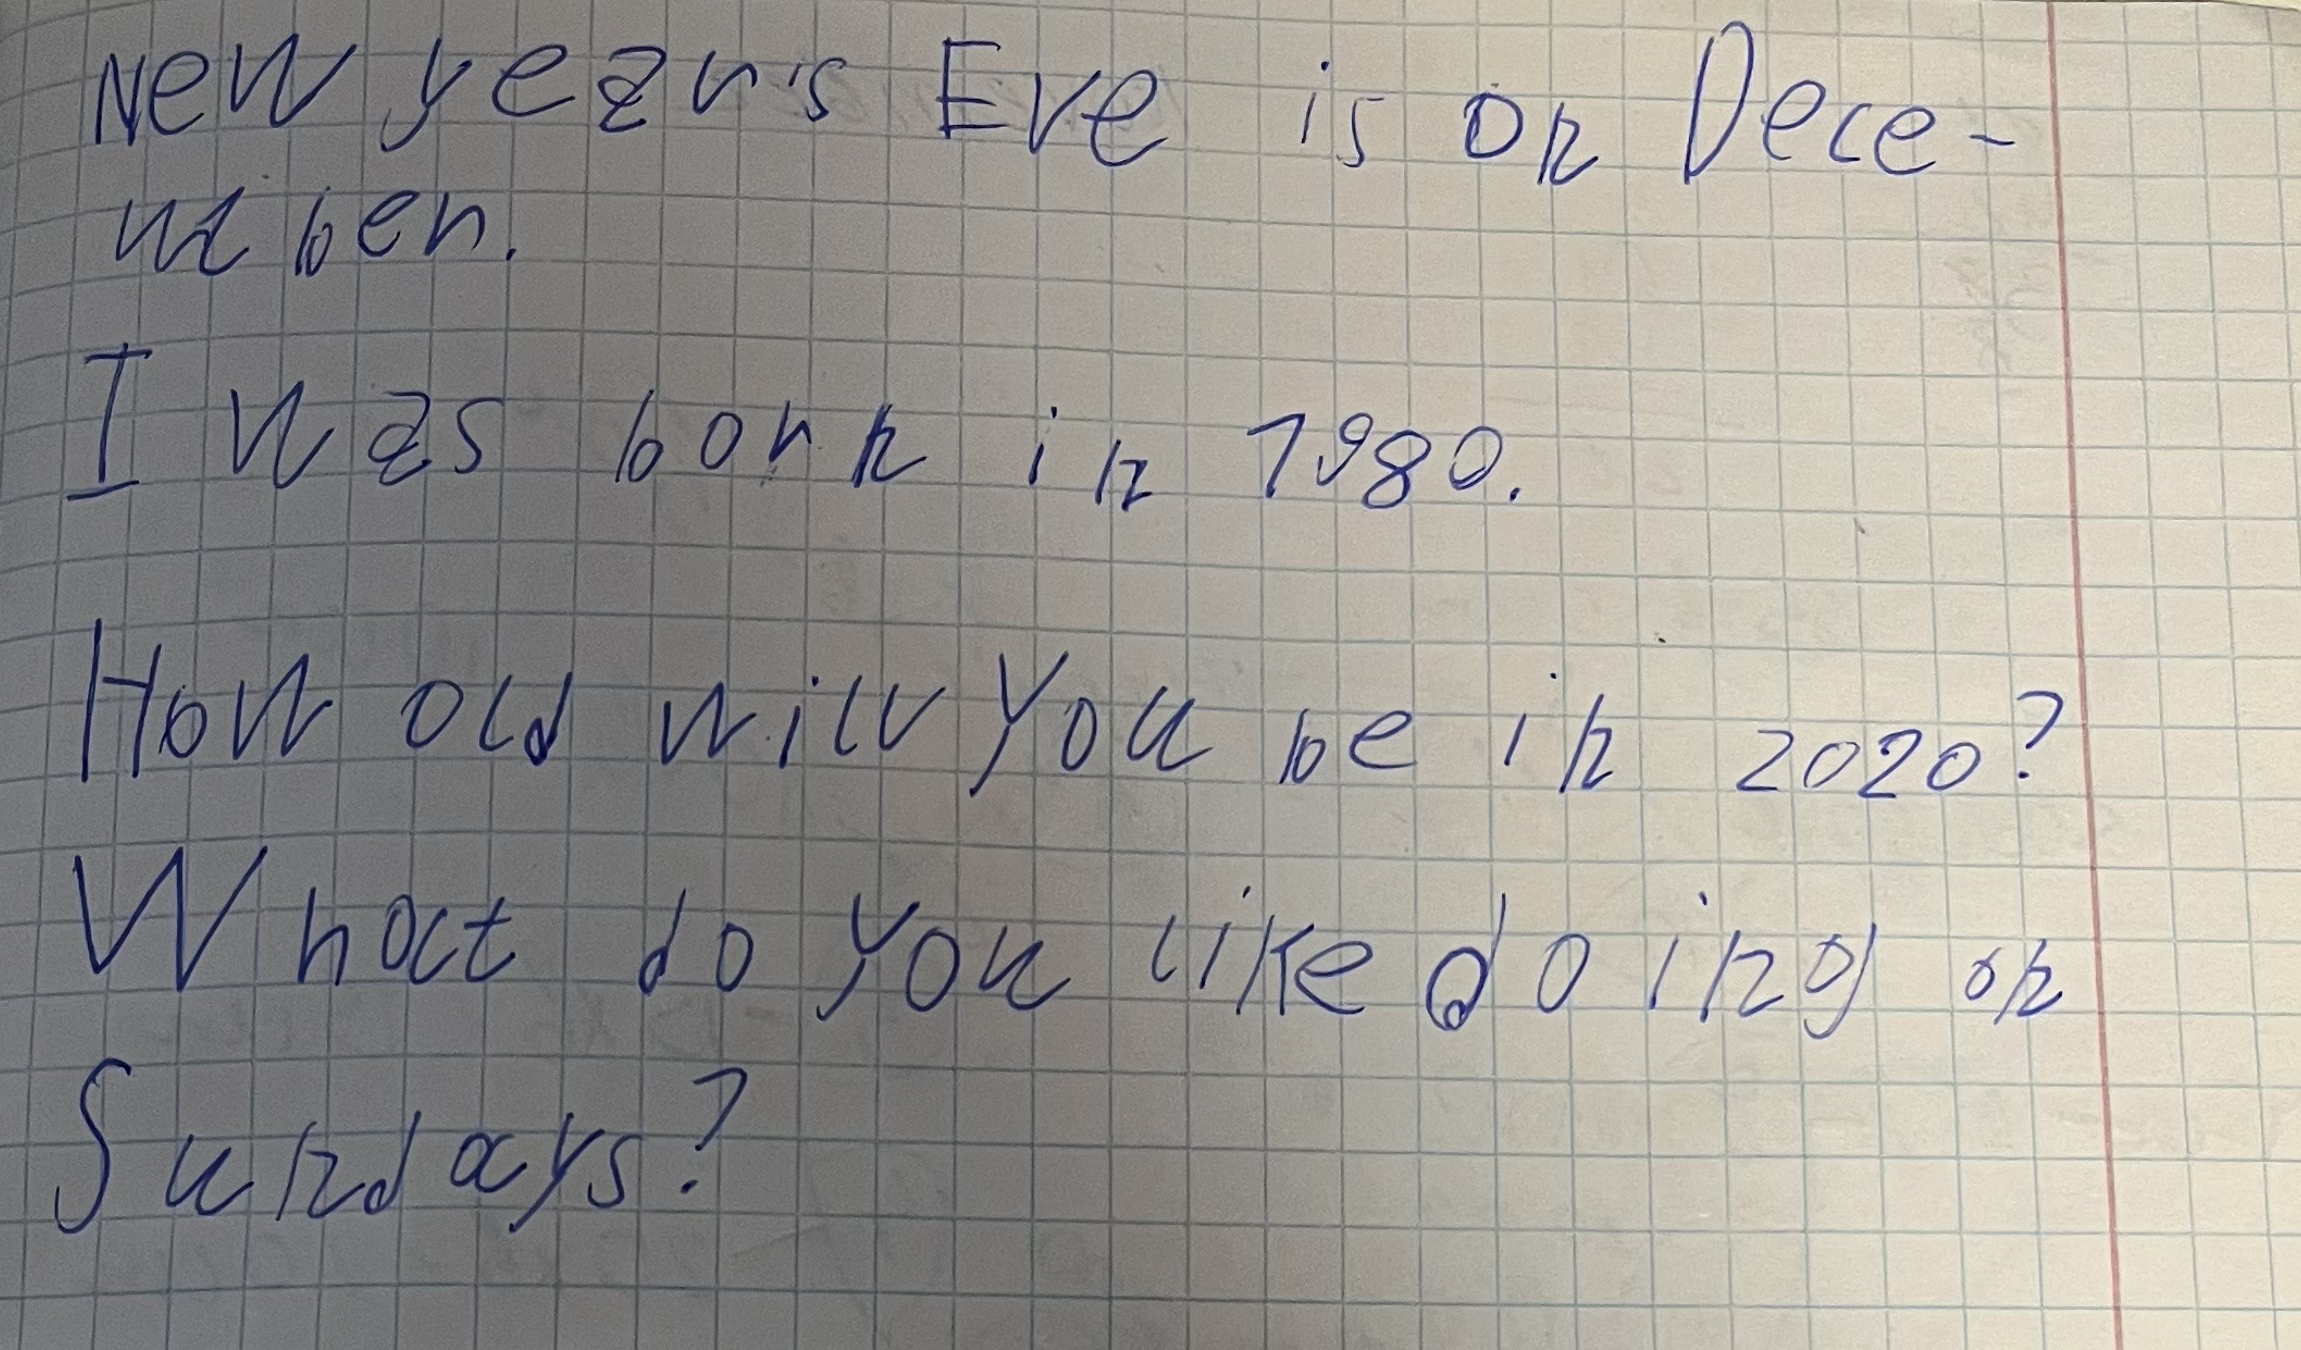 New year's Eve is on Dece-
mber.
I was born in 1980.
How old will you be in 2020?
What do you like doing on
Sundays?